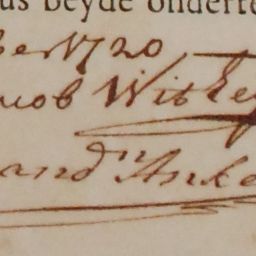 us beyde onderte
ber 1720
acob Witsey
and.ⁿ Anke